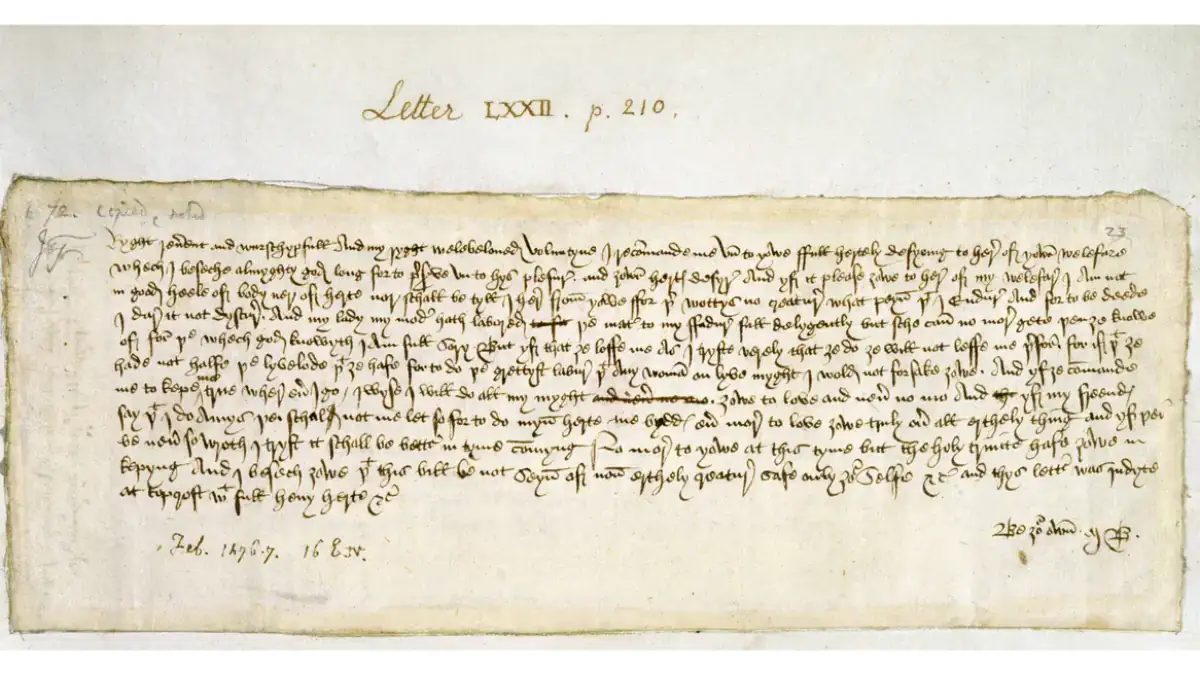 Letter LXXII. p. 210.
72. copied
23
Ryght reuerent and wurschypfull And my ryght welebeloued Voluntyne I recomande me vn to yowe ffull hertely desyryng to her of yowr welefare
Whech I beseche almyghty god long for to preserve vn to hys plesur and ȝowr hertes desyr And yf it please ȝowe to her of my welefar I am not
in good heele of body ner of herte nor schall be tyll I her from yowe ffor þer wottys no creatur what peyn þt I endur And for to be deede
I dar it not dyscur And my lady my moder hath labored þe mater to my ffadur full delygently but sche can no mor gete þen ȝe knowe
of for þe whech god knowyth I am full sory But yf that ȝe loffe me as I tryste verely that ȝe do ȝe will not leffe me þerfor for if þt ȝe
hade not halfe þe lyvelode þt ȝe hafe for to do þe grettyst labur þt any woman on lyve myght I wold not forsake ȝowe And yf ȝe comande
me to kepe me true wher euer I go I wyse I will do all my myght ȝowe to love and neuer no mo And yf my freends
say þt I do amys þei schal not me let so for to do myn herte me bydds euer mor to love ȝowe truly ouer all erthely thing and yf þei
be neuer so wroth I tryst it schall be better in tyme comyng No mor to yowe at this tyme but the holy trinite hafe ȝowe in
kepyng And I besech ȝowe þt this bill be not seyn of non erthely creatur safe only ȝour selfe &c and thys letter was indyte
at Topcroft wt full heuy herte &c
Be ȝour own MB.
Feb. 1476-7. 16 E. IV.